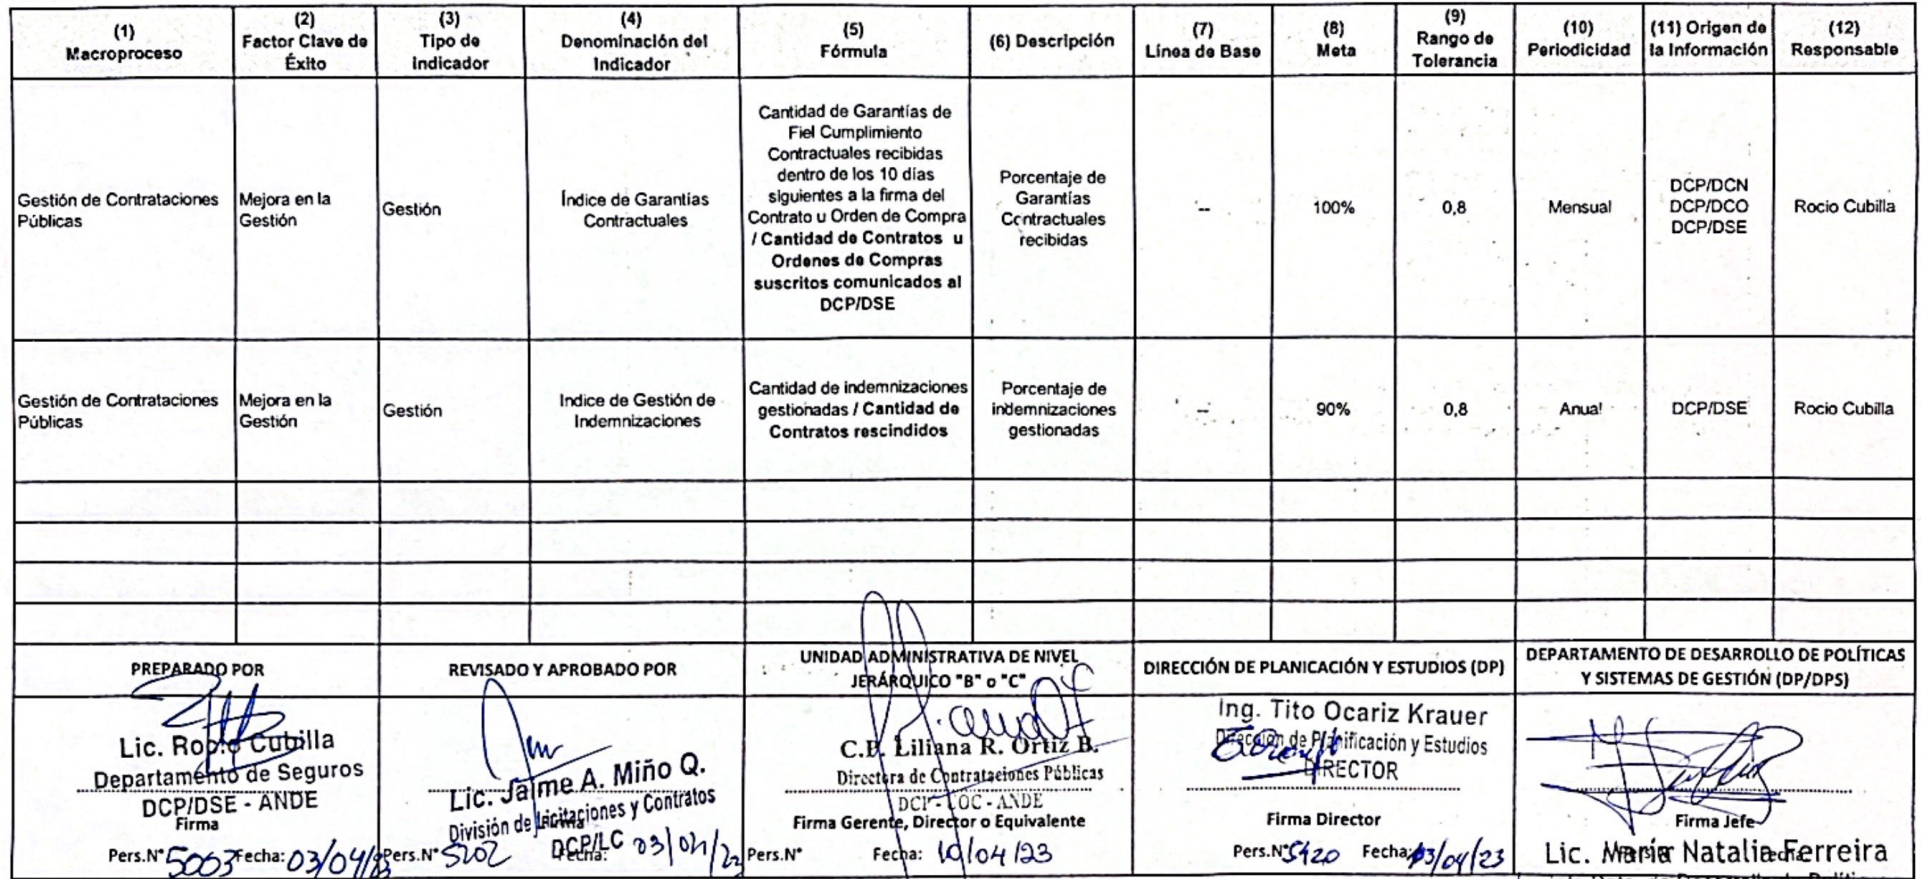 (1)
Macroproceso
(2)
Factor Clave de
Éxito
(3)
Tipo de
Indicador
(4)
Denominación del
Indicador
(5)
Fórmula
(6) Descripción
(7)
Línea de Base
(8)
Meta
(9)
Rango de
Tolerancia
(10)
Periodicidad
(11) Origen de
la Información
(12)
Responsable
Gestión de Contrataciones
Públicas
Mejora en la
Gestión
Gestión
Índice de Garantías
Contractuales
Cantidad de Garantías de
Fiel Cumplimiento
Contractuales recibidas
dentro de los 10 días
siguientes a la firma del
Contrato u Orden de Compra
/ Cantidad de Contratos u
Ordenes de Compras
suscritos comunicados al
DCP/DSE
Porcentaje de
Garantías
Contractuales
recibidas
--
100%
0,8
Mensual
DCP/DCN
DCP/DCO
DCP/DSE
Rocio Cubilla
Gestión de Contrataciones
Públicas
Mejora en la
Gestión
Gestión
Indice de Gestión de
Indemnizaciones
Cantidad de indemnizaciones
gestionadas / Cantidad de
Contratos rescindidos
Porcentaje de
indemnizaciones
gestionadas
--
90%
0,8
Anual
DCP/DSE
Rocio Cubilla
PREPARADO POR
Lic. Rocio Cubilla
Departamento de Seguros
DCP/DSE - ANDE
Firma
Pers.N° 5003 Fecha: 03/04/23
REVISADO Y APROBADO POR
Lic. Jaime A. Miño Q.
División de Licitaciones y Contratos
DCP/LC
Firma
Pers.N° 5202 Fecha: 03/04/23
UNIDAD ADMINISTRATIVA DE NIVEL
JERÁRQUICO "B" o "C"
C.P. Liliana R. Ortiz B.
Directora de Contrataciones Públicas
DCP - COC - ANDE
Firma Gerente, Director o Equivalente
Pers.N° Fecha: 10/04/23
DIRECCIÓN DE PLANICACIÓN Y ESTUDIOS (DP)
Ing. Tito Ocariz Krauer
Dirección de Planificación y Estudios
DIRECTOR
Firma Director
Pers.N° 5420 Fecha: 03/04/23
DEPARTAMENTO DE DESARROLLO DE POLÍTICAS
Y SISTEMAS DE GESTIÓN (DP/DPS)
Firma Jefe
Lic. María Natalia Ferreira